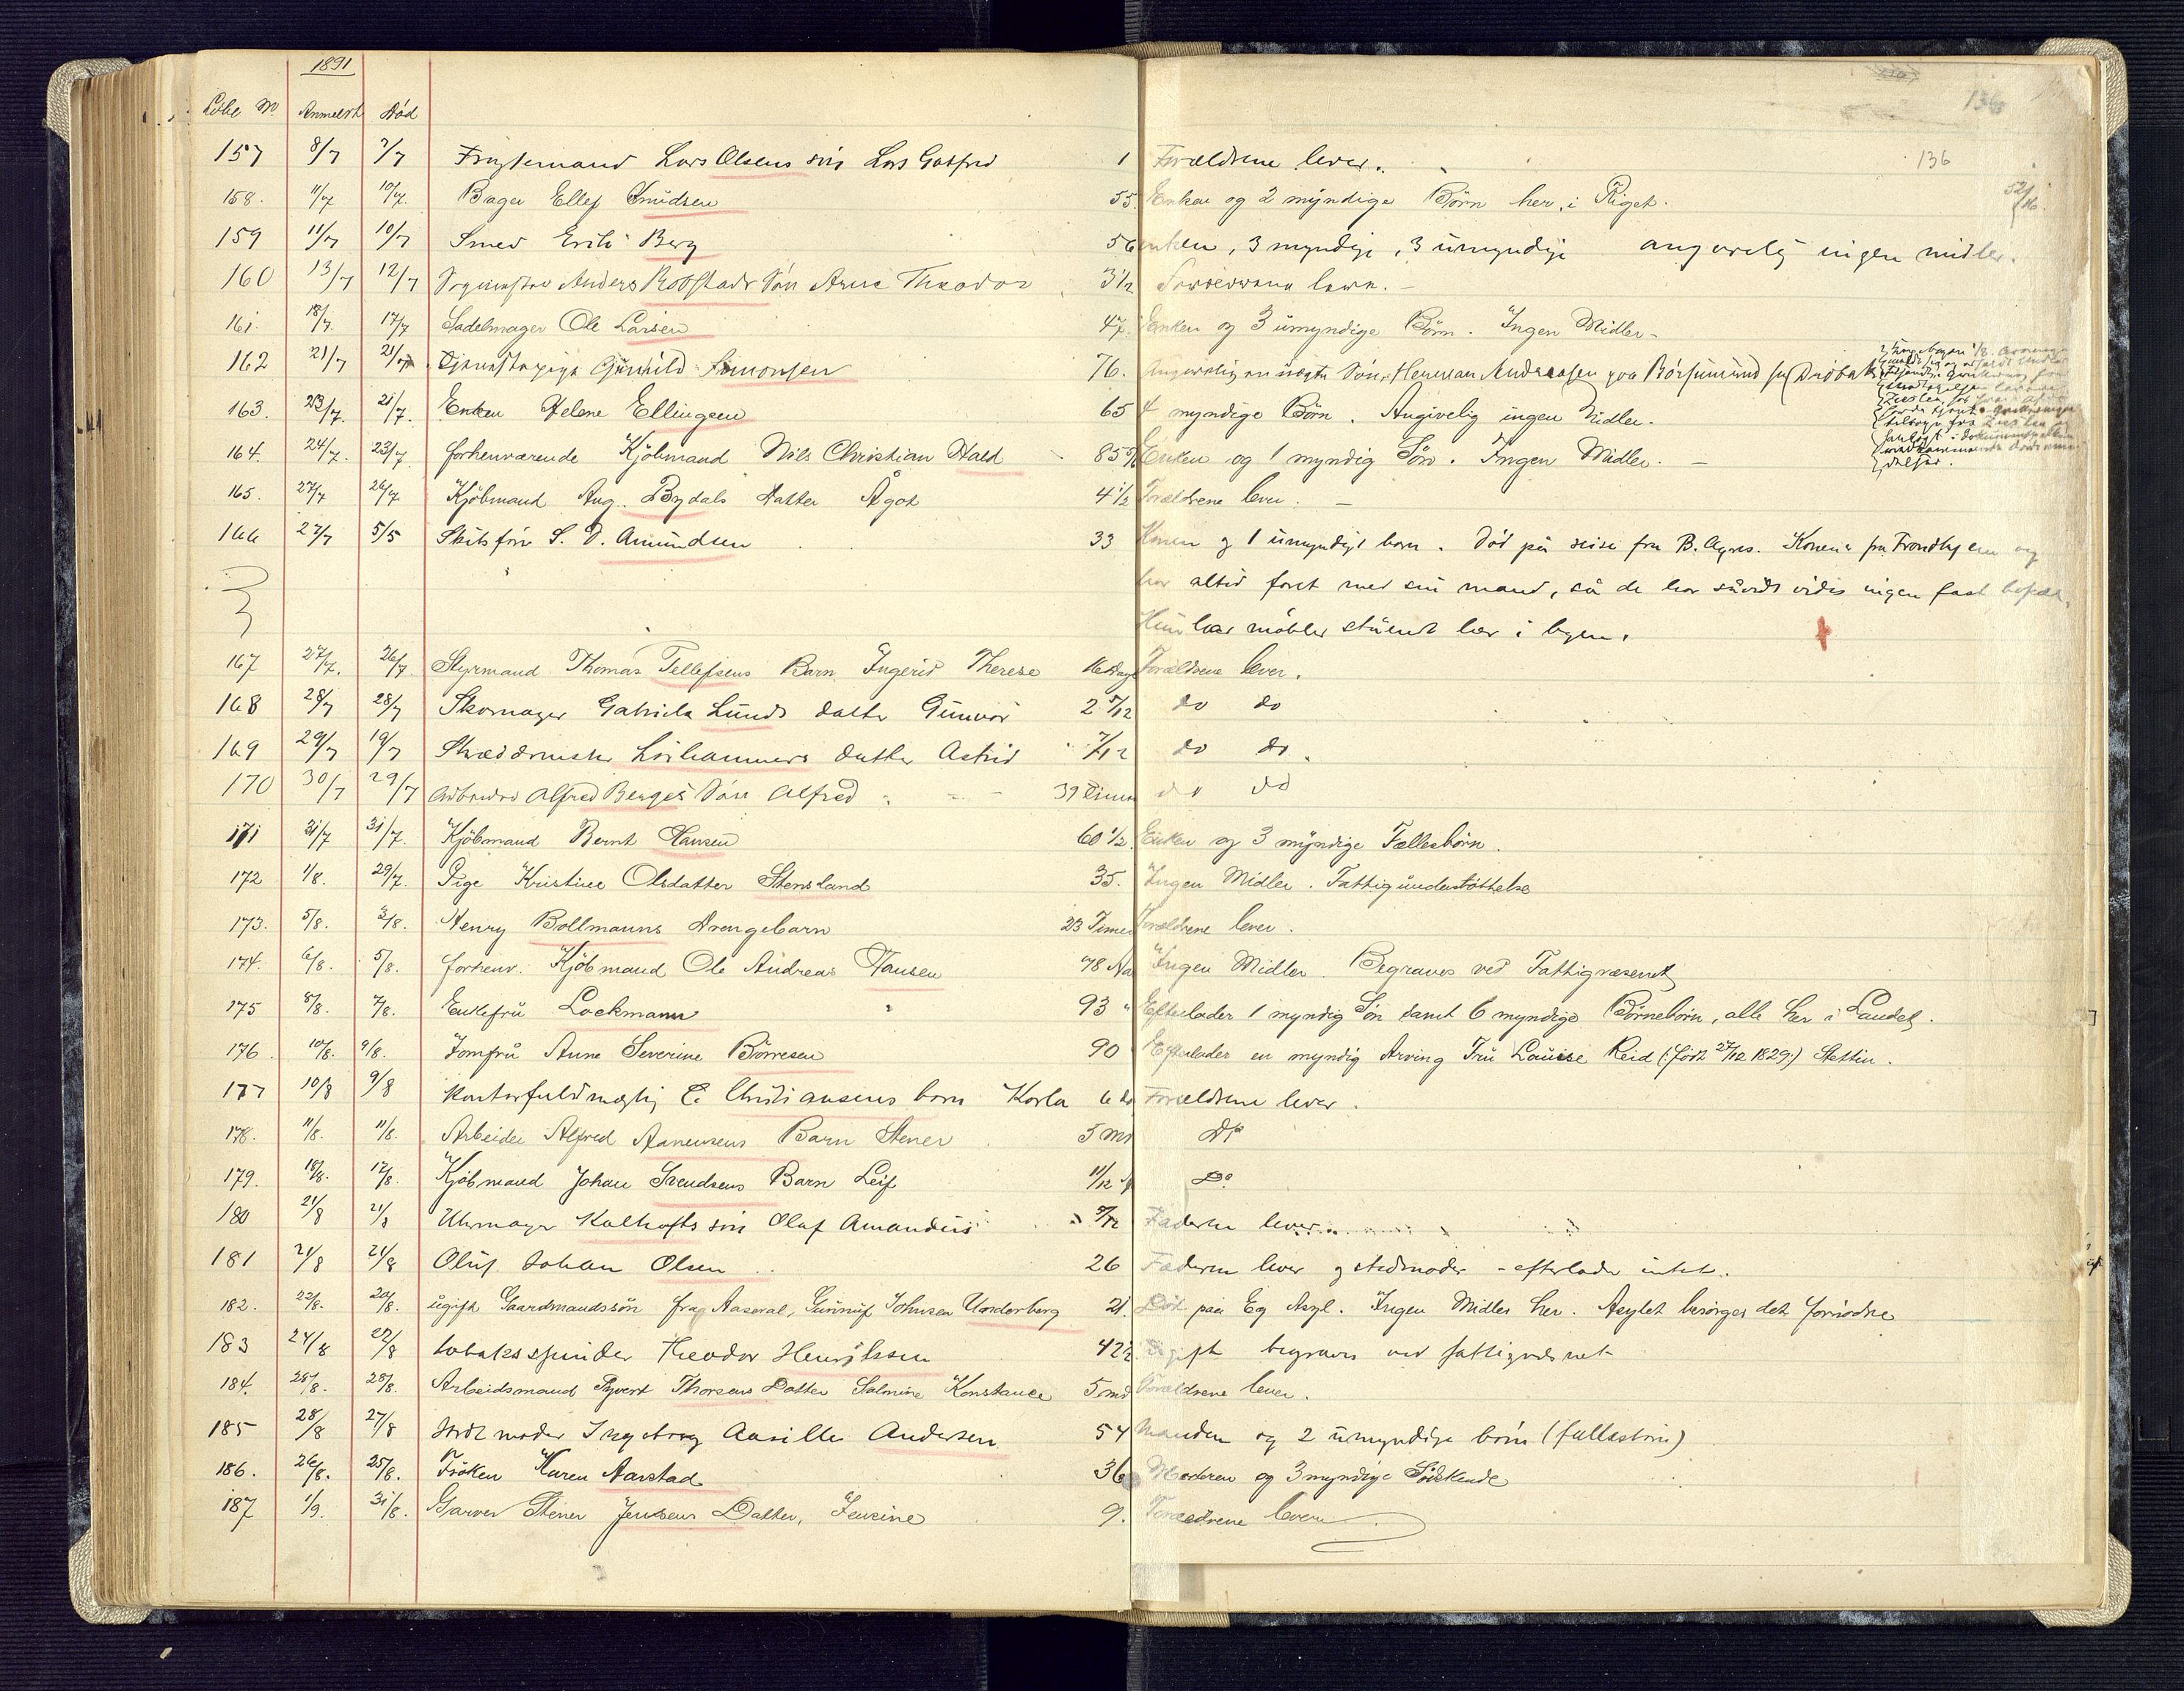 1891
136
Løbe No Anmeldt Død
136
157 8/7 7/7 Fragtemand Lars Olsens søn Lars Gotfred 1 Forældrene lever.
158. 11/7 10/7. Bager Ellef Knudsen 55. Enken og 2 myndige Børn her i Riget.
159 11/7 10/7 Smed Erik Berg 56 enken, 3 myndige, 3 umyndige angivelig ingen midler.
160 13/7 12/7 Anders Robstads Søn Arne Theodor 3 1/2 Forældrene leve. -
161. 18/7. 17/7 Sadelmager Ole Larsen 47. Enken og 3 umyndige Børn. Ingen Midler -
162 21/7 21/7 Tjenestepige Gunhild Simonsen 76. Angivelig en uægte Søn, Herman Andreasen paa
163. 23/7. 21/7. Enken Helene Ellingsen 65 4 myndige Børn. Angivelig ingen Midler.
164. 24/7. 23/7. forhenværende Kjøbmand Nils Christian Hald 85 Enken og 1 myndig Søn. Ingen Midler. -
165. 27/7 26/7 Kjøbmand Aug. Bydals Datter Ågot 4 1/2 Forældrene lever. -
166 27/7 5/5 Skibsfører S. D. Amundsen 33 Konen og 1 umyndigt barn. Død på reise fra B. Ayres. Konen er fra Trondhjem og
har altid faret med sin mand, så de har såvidt vides ingen fast bopæl.
Hun har møbler stående her i byen.
167 27/7. 26/7. Styrmand Thomas Tellefsens Barn Ingerid Therese 16 Dage Forældrene lever.
168 28/7 28/7 Skomager Gabriels Lunds datter Gunvor 2 5/12 do do
169 29/7 19/7 datter Astrid 7/12 do do.
170 30/7 29/7 Arbeider Alfred Berges Søn Alfred 39 Timer do do
171 31/7 31/7. Kjøbmand Bernt Hansen 60 1/2. Enken og 3 myndige Fællesbørn.
172 1/8. 29/7. Pige Kristine Olsdatter Stensland 35. Ingen Midler. Fattigunderstøttelse
173. 5/8. 3/8. Henry Bollmanns Drengebarn 23 Timer Forældrene lever.
174. 6/8. 5/8. forhenv. Kjøbmand Ole Andreas Hansen 78 Aar Ingen Midler. Begraves ved Fattigvæsenet
175 8/8. 7/8. Enkefru Lockmann 93 " Efterlader 1 myndig Søn samt 6 myndige Børnebørn, alle her i Landet.
176. 10/8. 9/8. Jomfru Anne Severine Børresen 90 Efterlader en myndig Arving Fru Louise Reid (født 27/12 1829) Stettin.
177 10/8 9/8 Kontorfuldmægtig C. Christiansens barn Karla 6 Forældrene lever.
178. 11/8. 11/8. Arbeider Alfred Aanensens Barn Stener 5 Md Do
179. 18/8. 17/8. Kjøbmand Johan Svendsens Barn Leif 11/12 Do
180 21/8 21/8 Uhrmager Kalhofts søn Olaf Amandus 7/12 Faderen lever.
181 21/8 21/8 Oluf Johan Olsen 26 Faderen lever og stedmoder - efterlader intet.
182. 22/8. 20/8. ugift Gaardmandssøn fra Aaseral, Gunnuf Johnsen Underberg 21. Død paa Eg Asyl. Ingen Midler her. Asylet besørger det fornødne
183 24/8 22/8 tobaksspinder Theodor Henriksen 42 1/2 Ugift begraves ved fattigvæsenet
184. 28/8. 28/8. Arbeidsmand Syvert Thorsens Datter Salmine Konstance 5 md Forældrene lever.
185 28/8 27/8 Jordmoder Ingeborg Andersen 54 Manden og 2 umyndige børn (fællesbørn)
186. 26/8. 25/8. Frøken Karen Aarstad 36 Moderen og 3 myndige Sødskende
187 1/9. 31/8. Garver Stener Jensens Datter, Jensine 9. Forældrene lever